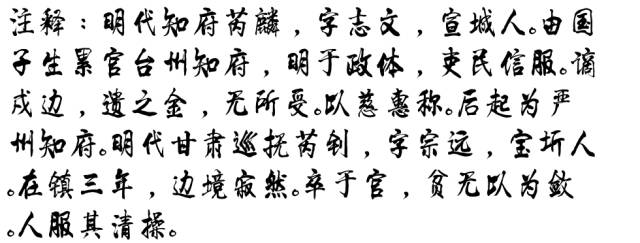 注释：明代知府芮麟，字志文，宣城人。由国
子生累官台州知府，明于政体，吏民信服。谪
戍边，遗之金，无所受。以慈惠称。后起为严
州知府。明代甘肃巡抚芮钊，字宗远，宝坻人
。在镇三年，边境寂然。卒于官，贫无以为敛
。人服其清操。